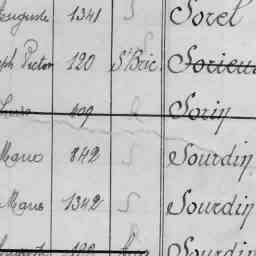 Auguste 1341 S Sorel
ph Victor 120 St Bric Sorieu
Louis 409 Sorin
Mans 842 S Sourdin
Mans 1342 S Sourdin
Sourdin